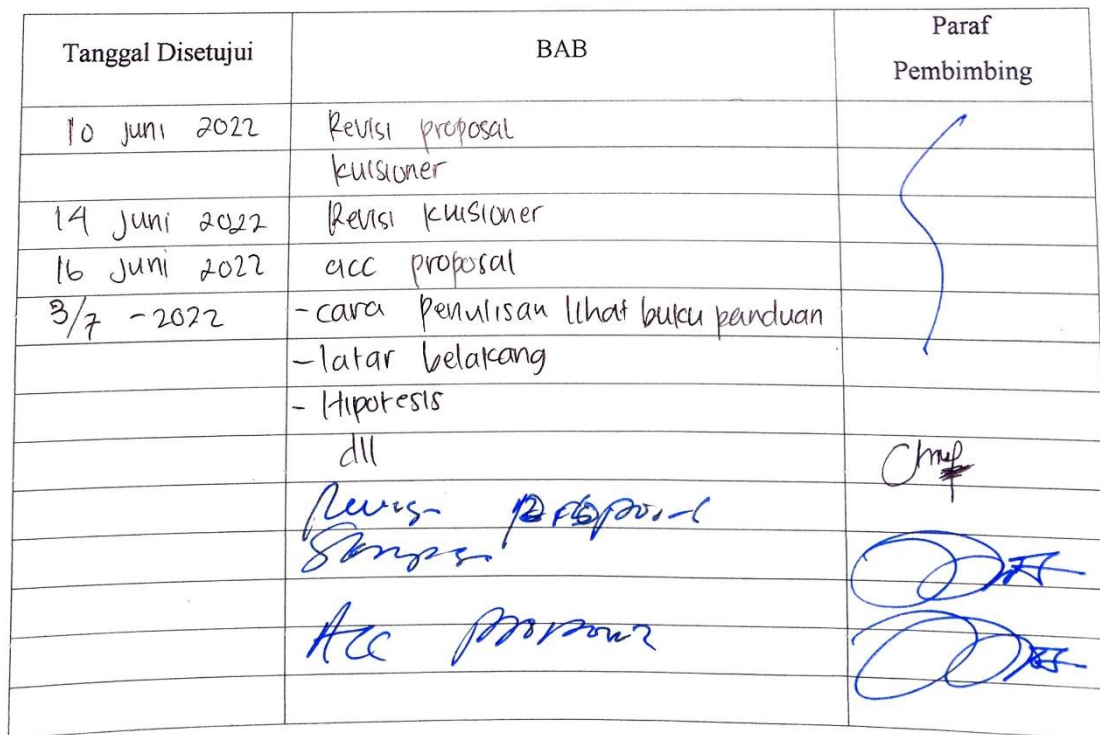 Tanggal Disetujui BAB Paraf
Pembimbing
10 juni 2022 Revisi proposal
kuisioner
14 juni 2022 Revisi kuisioner
16 juni 2022 acc proposal
3/7 - 2022 - cara penulisan lihat buku panduan
- latar belakang
- Hipotesis
dll
Revisi proposal
Skripsi
Acc proposal